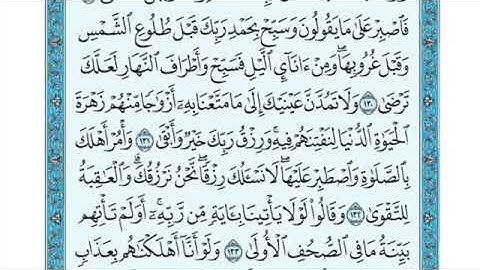 فَٱصْبِرْ عَلَىٰ مَا يَقُولُونَ وَسَبِّحْ بِحَمْدِ رَبِّكَ قَبْلَ طُلُوعِ ٱلشَّمْسِ
وَقَبْلَ غُرُوبِهَا ۖ وَمِنْ ءَانَآئِ ٱلَّيْلِ فَسَبِّحْ وَأَطْرَافَ ٱلنَّهَارِ لَعَلَّكَ
تَرْضَىٰ ١٣٠ وَلَا تَمُدَّنَّ عَيْنَيْكَ إِلَىٰ مَا مَتَّعْنَا بِهِۦٓ أَزْوَٰجًا مِّنْهُمْ زَهْرَةَ
ٱلْحَيَوٰةِ ٱلدُّنْيَا لِنَفْتِنَهُمْ فِيهِ ۚ وَرِزْقُ رَبِّكَ خَيْرٌ وَأَبْقَىٰ ١٣١ وَأْمُرْ أَهْلَكَ
بِٱلصَّلَوٰةِ وَٱصْطَبِرْ عَلَيْهَا ۖ لَا نَسْـَٔلُكَ رِزْقًا ۖ نَّحْنُ نَرْزُقُكَ ۗ وَٱلْعَٰقِبَةُ
لِلتَّقْوَىٰ ١٣٢ وَقَالُوا۟ لَوْلَا يَأْتِينَا بِـَٔايَةٍ مِّن رَّبِّهِۦٓ ۚ أَوَلَمْ تَأْتِهِم
بَيِّنَةُ مَا فِى ٱلصُّحُفِ ٱلْأُولَىٰ ١٣٣ وَلَوْ أَنَّآ أَهْلَكْنَٰهُم بِعَذَابٍ